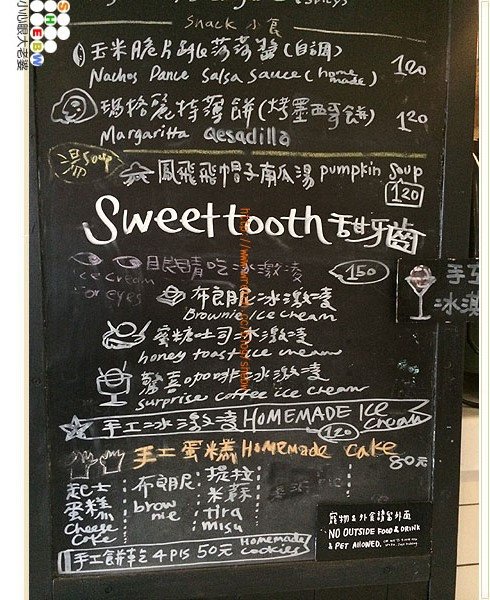 小心眼大老婆
SHEBW
Snack 小食
玉米脆片跳蕃茄醬(自調)
Nachos Pance Salsa Sauce (home made) 120
瑪格麗特薄餅(烤墨西哥餅)
Margaritta Qesadilla 120
湯 soup
鳳飛飛帽子南瓜湯 pumpkin soup
120
Sweet tooth 甜牙齒
眼睛吃冰激凌 150
ice cream
For eyes
布朗尼冰激凌
Brownie Ice cream
蜜糖吐司冰激凌
honey toast ice cream
驚喜咖啡冰激凌
surprise coffee ice cream
手工冰激凌 HOMEMADE Ice cream
120
手工
冰激
手工蛋糕 Homemade cake
80元
起士蛋糕
cheese cake
布朗尼
brownie
提拉米蘇
tiramisu
手工餅乾 4 PIS 50元 Homemade cookies
寵物&外食請留外面
NO OUTSIDE FOOD & DRINK
& PET ALLOWED.